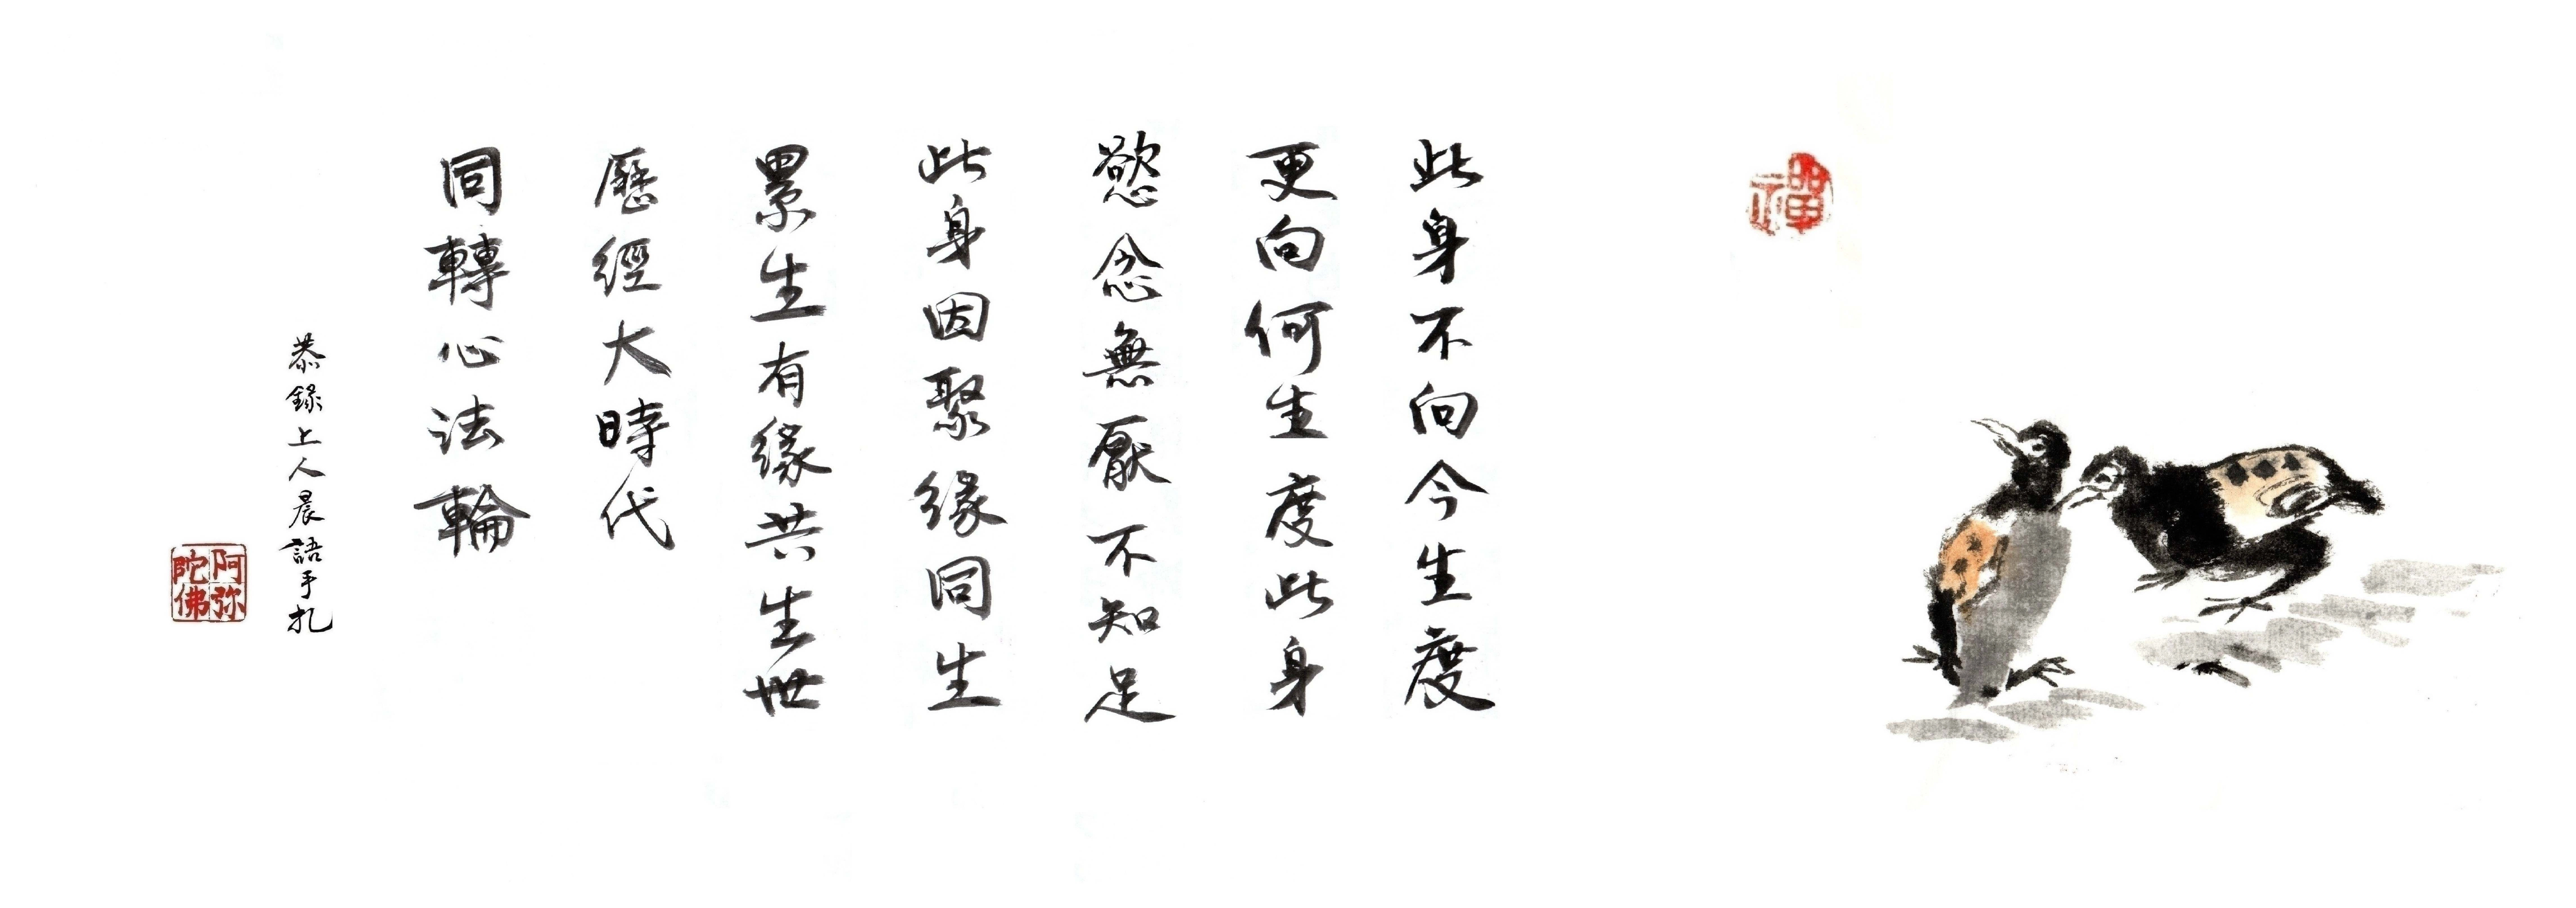 禪
此身不向今生度
更向何生度此身
慾念無厭不知足
此身因聚緣同生
累生有緣共生世
歷經大時代
同轉心法輪
恭錄上人晨語手扎
阿弥
陀佛